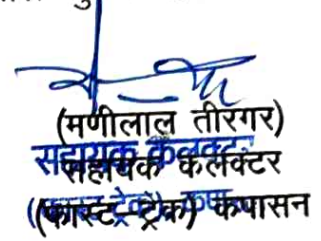 (मणीलाल तीरगर)
सहायक कलक्टर
(फास्ट-ट्रेक) कपासन